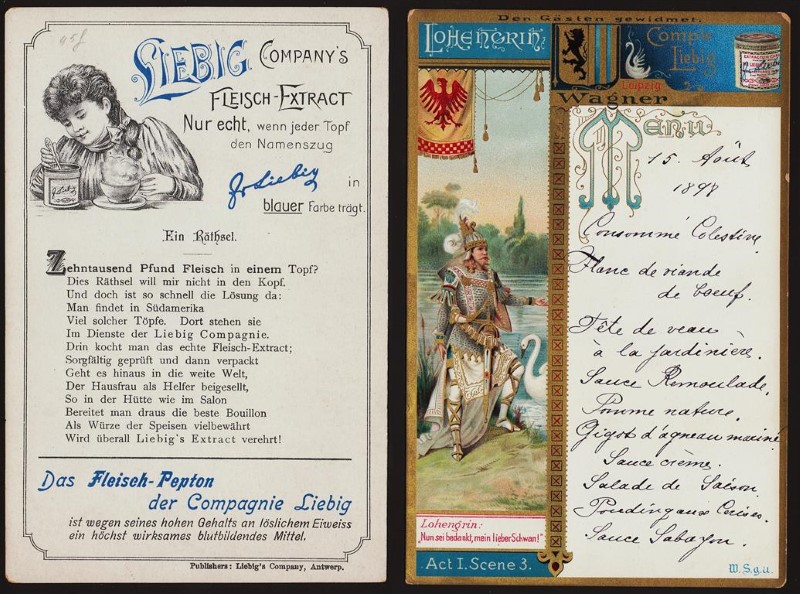 LIEBIG COMPANY'S
FLEISCH-EXTRACT
Nur echt, wenn jeder Topf
den Namenszug
J v Liebig in
blauer Farbe trägt.
Ein Räthsel.
Zehntausend Pfund Fleisch in einem Topf?
Dies Räthsel will mir nicht in den Kopf.
Und doch ist so schnell die Lösung da:
Man findet in Südamerika
Viel solcher Töpfe. Dort stehen sie
Im Dienste der Liebig Compagnie.
Drin kocht man das echte Fleisch-Extract;
Sorgfältig geprüft und dann verpackt
Geht es hinaus in die weite Welt,
Der Hausfrau als Helfer beigesellt,
So in der Hütte wie im Salon
Bereitet man draus die beste Bouillon
Als Würze der Speisen vielbewährt
Wird überall Liebig's Extract verehrt!
Das Fleisch-Pepton
der Compagnie Liebig
ist wegen seines hohen Gehalts an löslichem Eiweiss
ein höchst wirksames blutbildendes Mittel.
Publishers: Liebig's Company, Antwerp.
Den Gästen gewidmet.
LOHENGRIN
Comp.ie
Liebig
Leipzig
Wagner
Menu
15. Août
1898
Consommé Celestine
Flanc de viande
de boeuf.
Tête de veau
à la jardinière.
Sauce Remoulade.
Pomme nature.
Gigot d'agneau mariné
Sauce crème.
Salade de Saison.
Pouding aux Cerises.
Sauce Sabayon.
Lohengrin:
"Nun sei bedankt, mein lieber Schwan!"
Act I. Scene 3.
W.S.g.u.